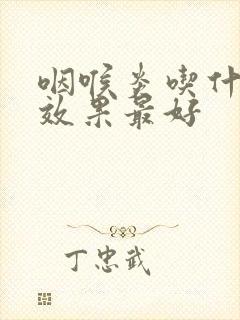 咽喉炎喫什
效果最好
丁忠武